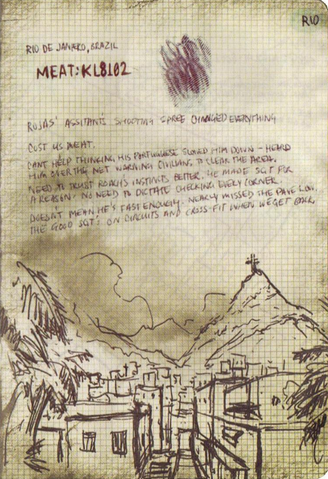 RIO
RIO DE JANEIRO, BRAZIL
MEAT: KL8102
ROJAS' ASSISTANT'S SHOOTING SPREE CHANGED EVERYTHING
COST US MEAT.
CAN'T HELP THINKING HIS PORTUGUESE SLOWED HIM DOWN - HEARD
HIM OVER THE NET WARNING CIVILIANS TO CLEAR THE AREA.
NEED TO TRUST ROACH'S INSTINCTS BETTER. HE MADE SGT FOR
A REASON - NO NEED TO DICTATE CHECKING EVERY CORNER.
DOESN'T MEAN HE'S FAST ENOUGH. NEARLY MISSED THE PAVE LOW.
THE GOOD SGT'S ON CIRCUITS AND CROSS-FIT WHEN WE GET BACK.